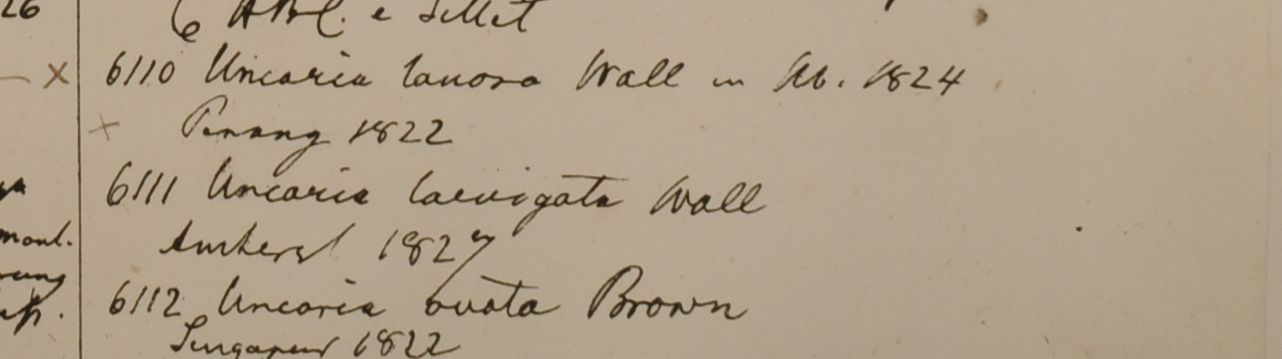 26
6 ABC. e Sillet
— x 6110 Uncaria lanosa Wall in Ab. 1824
x Penang 1822
6111 Uncaria laevigata Wall
Amherst 1827
mont. 6112 Uncaria ovata Brown
Singapur 1822